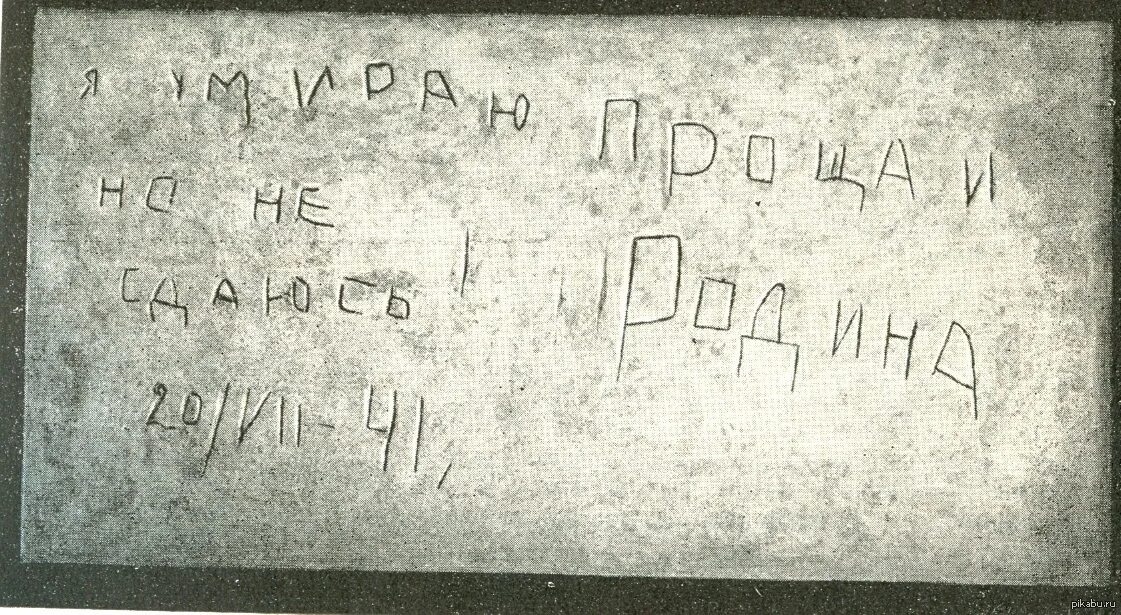 Я УМИРАЮ
НО НЕ
СДАЮСЬ!
ПРОЩАИ
РОДИНА
20/VII-41,
pikabu.ru